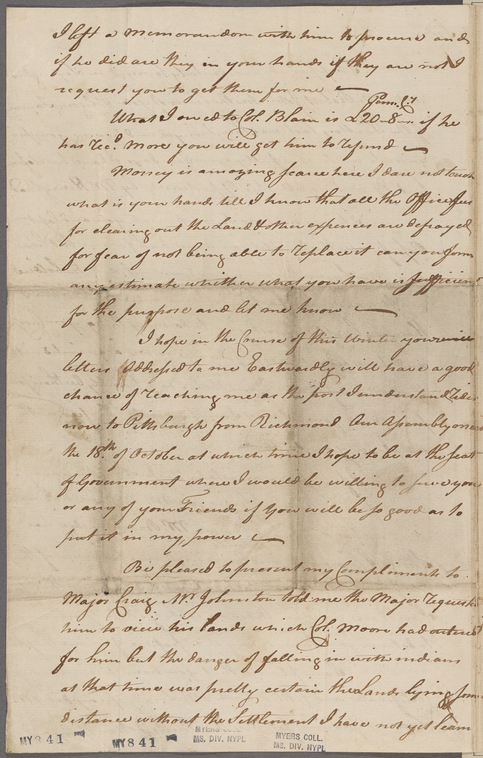 I left a memorandom with him to procure and
if he did are they in your hands if they are not I
request you to get them for me
What I owed to Col. Blain is £20-8- if he
has Rec'd more you will get him to refund
Money is amazeing scarce here I dare not touch
what is your hands till I know that all the Office fees
for clearing out the Land & other expences are defrayed
for fear of not being able to replace it can you form
any estimate whether what you have is sufficient
for the purpose and let me know
I hope in the Course of this Winter your
letters addressed to me Eastwardly will have a good
chance of reaching me as the post I understand Rides
now to Pittsburgh from Richmond Our Assembly
the 18th of October at which time I hope to be at the Seat
of Government where I would be willing to serve you
or any of your Friends if you will be so good as to
put it in my power
Be pleased to present my Compliments to
Major Craig Mr Johnston told me the Major request
him to view his lands which Col. Moore had entered
for him but the danger of falling in with indians
at that time was pretty certain the Lands lying some
distance without the Settlement I have not yet learn
MY841 MY841 MYERS COLL. MS. DIV. NYPL MYERS COLL. MS. DIV. NYPL